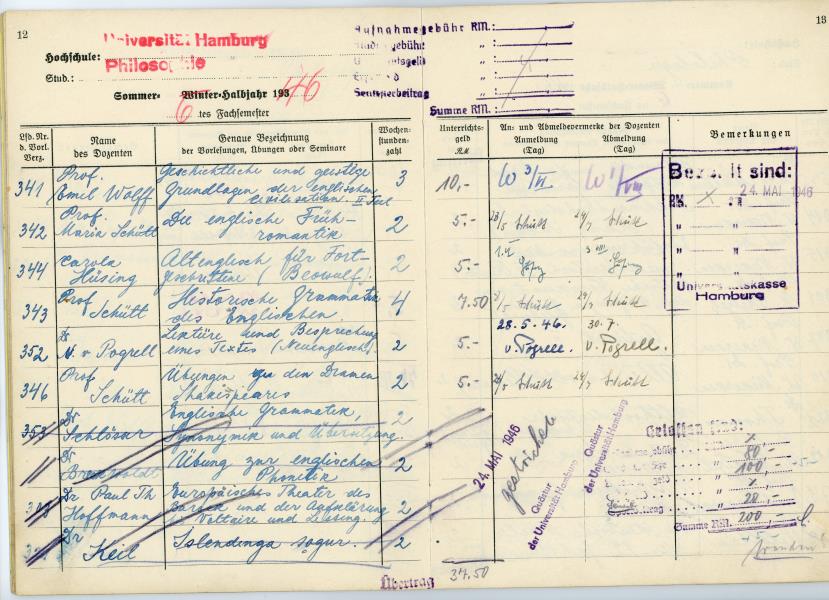 12
13
Universität Hamburg
Hochschule:
Philosophie
Stud.:
Sommer- Winter-Halbjahr 193 46
6 tes Fachsemester
Aufnahmegebühr RM.:
Studiengebühr " :
" :
" :
Seminarbeitrag " :
Summe RM.:
Lfd. Nr. d. Vorl. Verz.
Name des Dozenten
Genaue Bezeichnung der Vorlesungen, Übungen oder Seminare
Wochenstundenzahl
Unterrichtsgeld RM
An- und Abmeldevermerke der Dozenten
Anmeldung (Tag)
Abmeldung (Tag)
Bemerkungen
341 Prof. Emil Wolff Geschichtliche und geistige Grundlagen der englischen Civilisation. II. Teil 3 10,-
342 Prof. Maria Schütt Die englische Frühromantik 2 5.- Schütt Schütt
344 Carola Hüsing Altenglisch für Fortgeschrittene (Beowulf). 2 5.-
343 Prof Schütt Historische Grammatik des Englischen. 4 7.50 Schütt Schütt
352 Dr N. v Pogrell Lektüre und Besprechung eines Textes (Neuenglisch). 2 5.- 28.5.46. v. Pogrell. 30.7. v. Pogrell.
346 Prof Schütt Übungen zu den Dramen Shakespeares 2 5.- Schütt Schütt
353 Dr Schlösser Englische Grammatik, Synonymik und Übersetzung. 2
Dr Übung zur englischen Phonetik 2
Dr Paul Th Hoffmann Europäisches Theater des Barock und der Aufklärung Voltaire und Lessing. 2
Dr Keil Islendinga sogur. 2
Bezahlt sind:
RM. "
24. MAI 1946
" "
" "
" "
Universitätskasse
Hamburg
24. MAI 1946
gestrichen
Quästur
der Universität Hamburg
Quästur
der Universität Hamburg
Erlassen sind:
80,-
100,-
20,-
Summe RM. 200,-
Übertrag 37.50